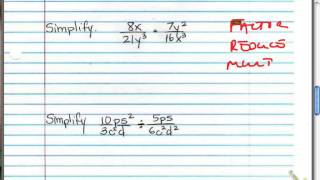 Simplify. 8x/21y³ · 7y²/16x³
FACTOR
REDUCE
MULT
Simplify 10ps²/3c²d ÷ 5ps/6c²d²